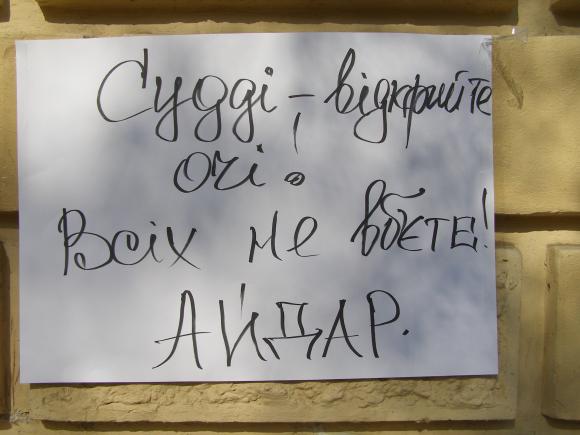 Судді, – відкрийте
очі!
Всіх не вбєте!
АЙДАР.